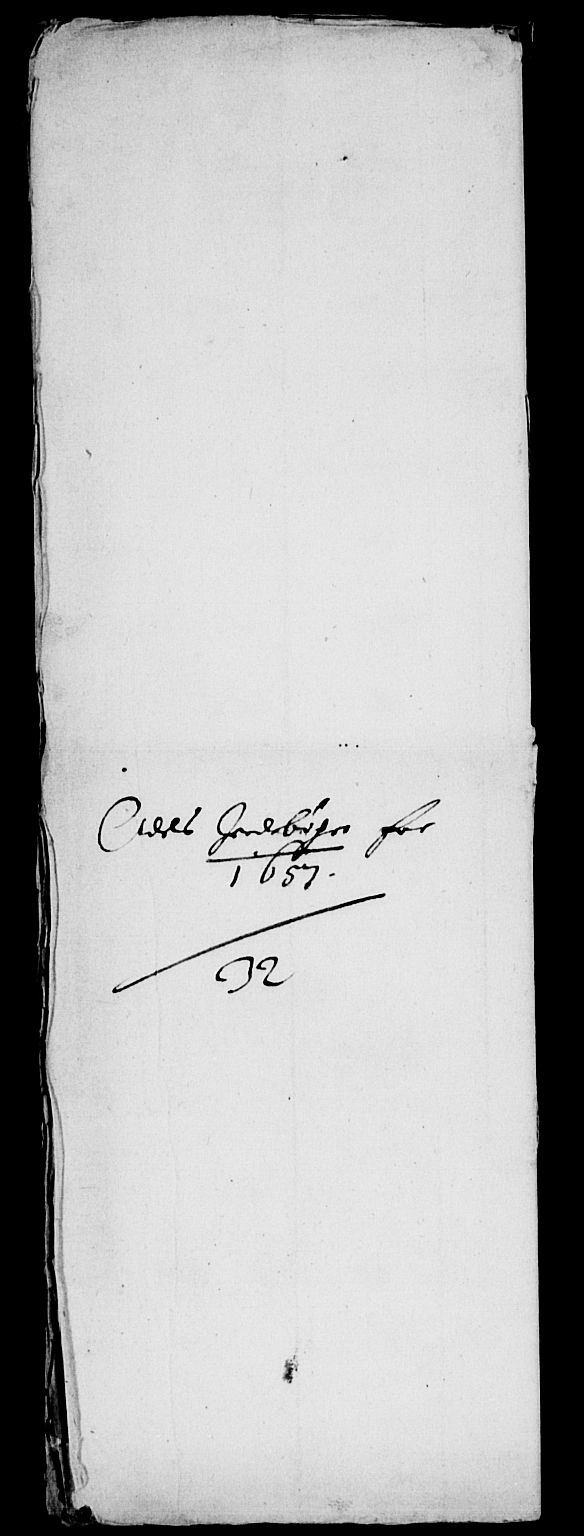 Odels Jordebøger for
1657.
32